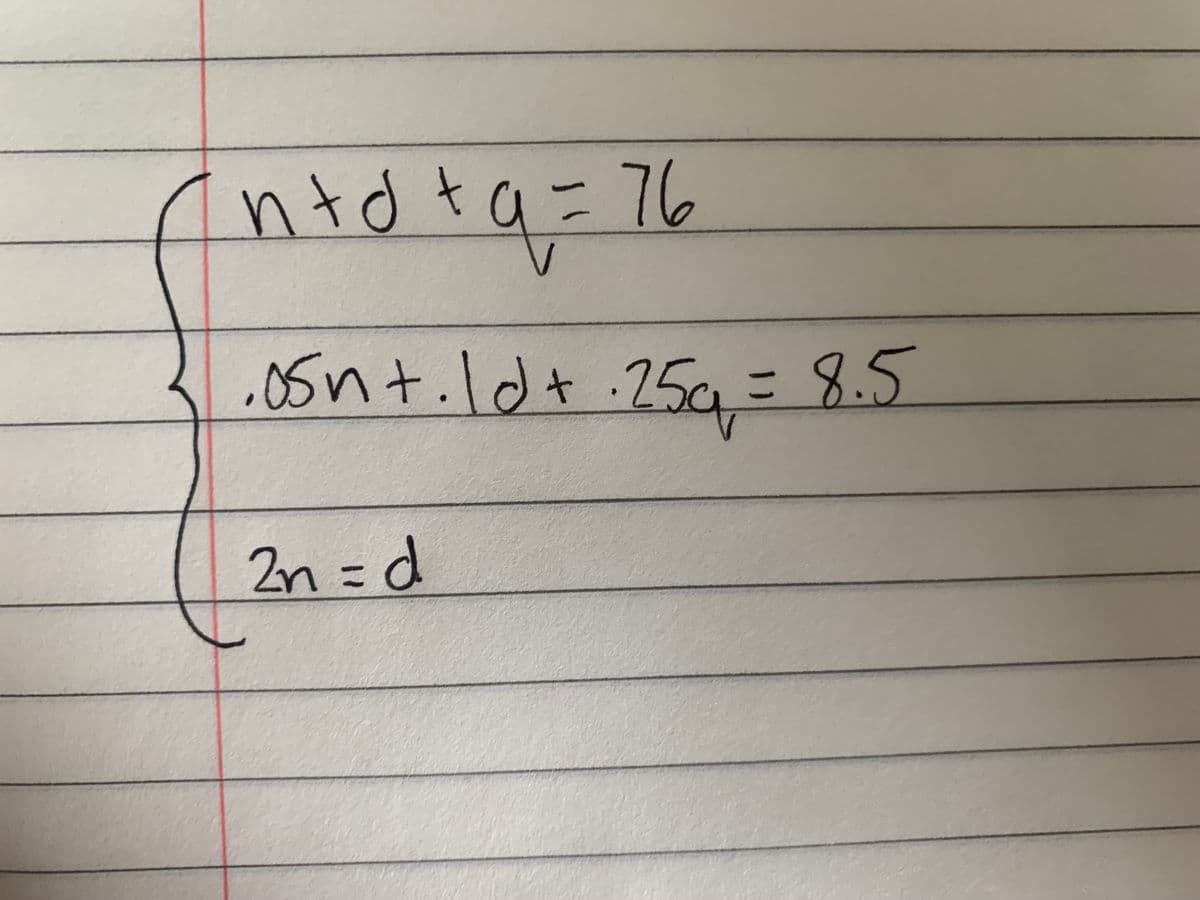 n+d+q=76
.05n+.1d+.25q=8.5
2n=d